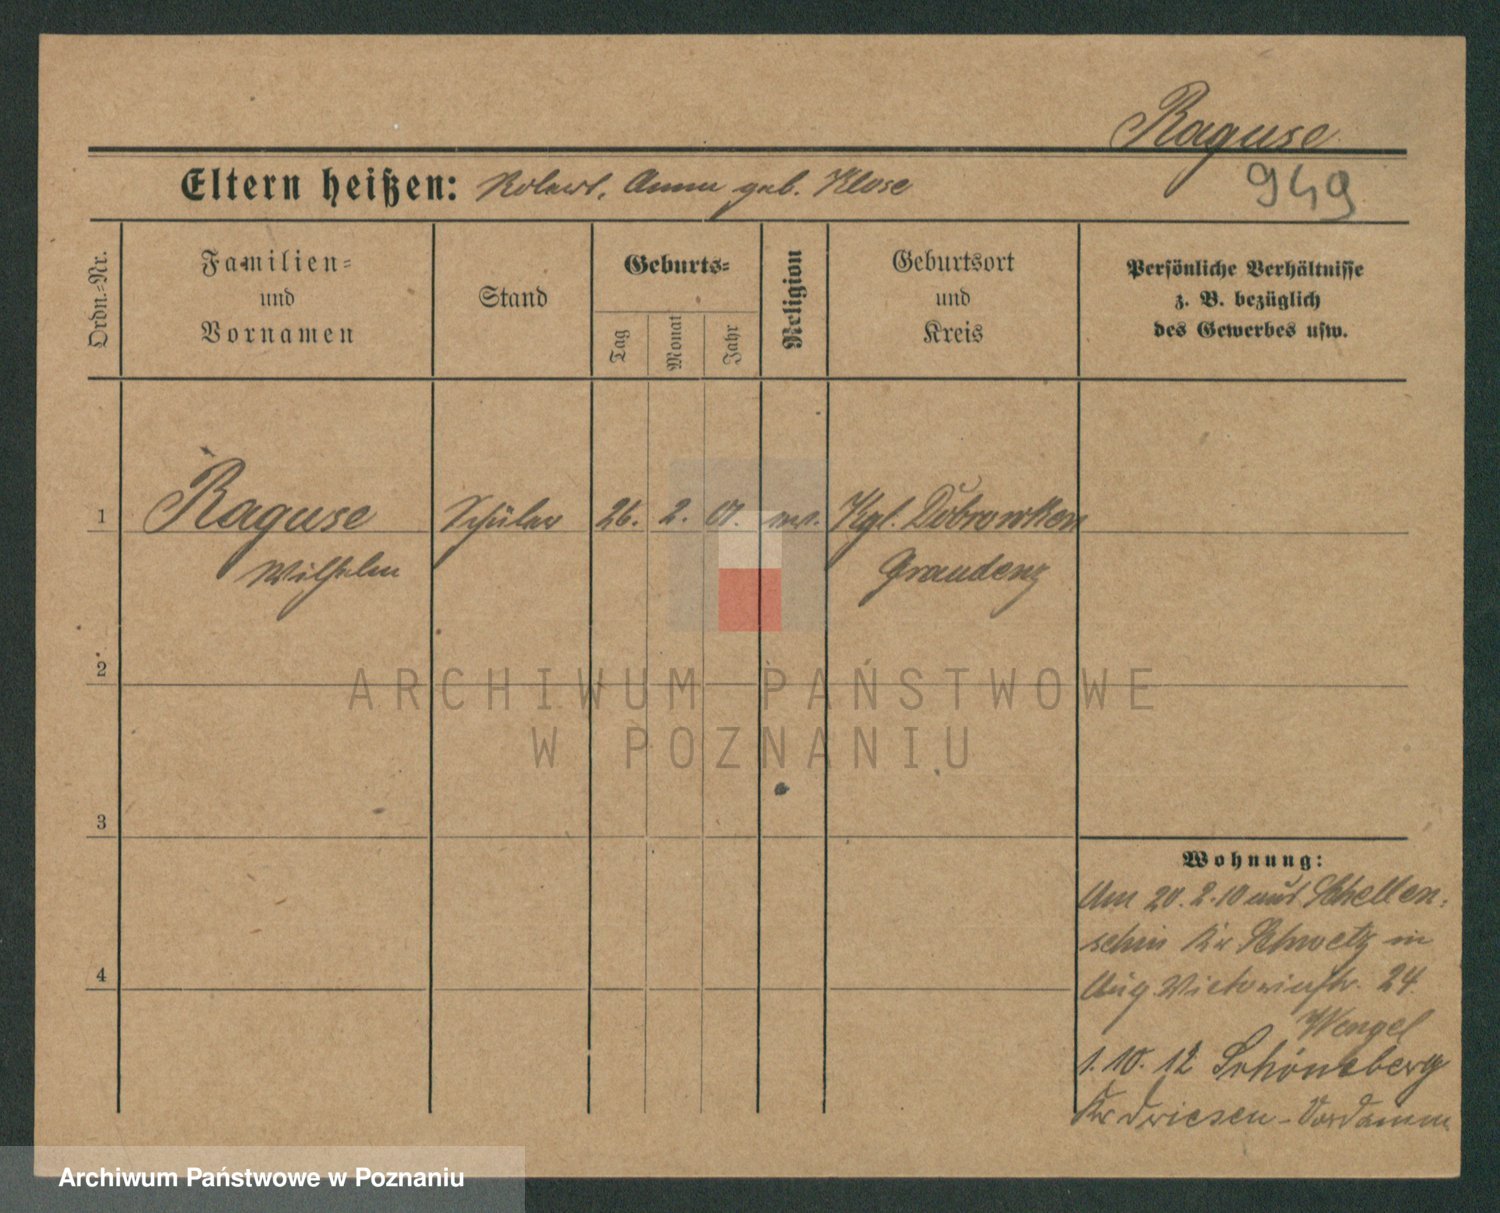 Raguse
949
Eltern heißen: Robert, Anna geb. Klose
Ordn.=Nr.
Familien=
und
Vornamen
Stand
Geburts=
Tag
Monat
Jahr
Religion
Geburtsort
und
Kreis
Persönliche Verhältnisse
z. B. bezüglich
des Gewerbes usw.
1
Raguse Schüler 26. 2. 01. ev. Kgl. Dobrowken
Wilhelm Graudenz
2
ARCHIWUM PAŃSTWOWE
W POZNANIU
3
Wohnung:
Am 20. 2. 10 aus Schellen-
schin Kr Schwetz in
4
Aug. Victoriastr. 24.
Wengel
1. 10. 12 Schöneberg
Kr Driesen - Vordamm
Archiwum Państwowe w Poznaniu